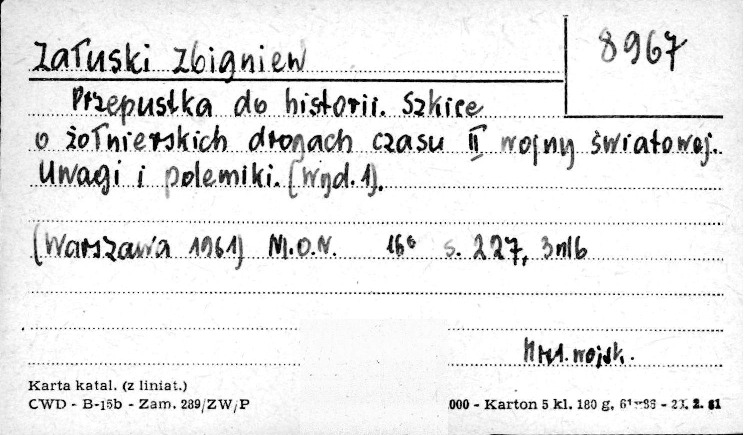 Załuski Zbigniew
8967
Przepustka do historii. Szkice
o żołnierskich drogach czasu II wojny światowej.
Uwagi i polemiki. (Wyd. 1).
(Warszawa 1961) M.O.N. 16° s. 227, 3nlb
wojsk.
Karta katal. (z liniat.)
CWD - B-15b - Zam. 289/ZW/P
000 - Karton 5 kl. 180 g. 2. 61